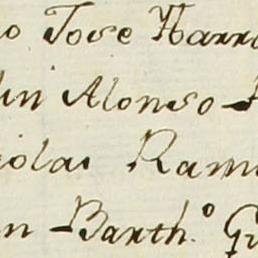 o Jose Narr
lin Alonso
icolas Rami
n Barth.º Gu